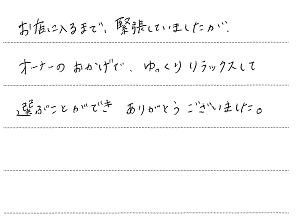 お店に入るまで、緊張していましたが、
オーナーのおかげで、ゆっくりリラックスして
選ぶことができ ありがとうございました。